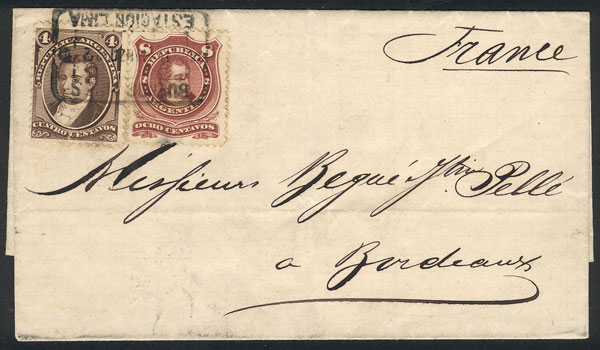 ESTACION LIMA
4 4
REPUBLICA ARGENTINA
CUATRO CENTAVOS
8 8
REPUBLICA
ARGENTINA
OCHO CENTAVOS
France
Messieurs Begué Pellé
a Bordeaux